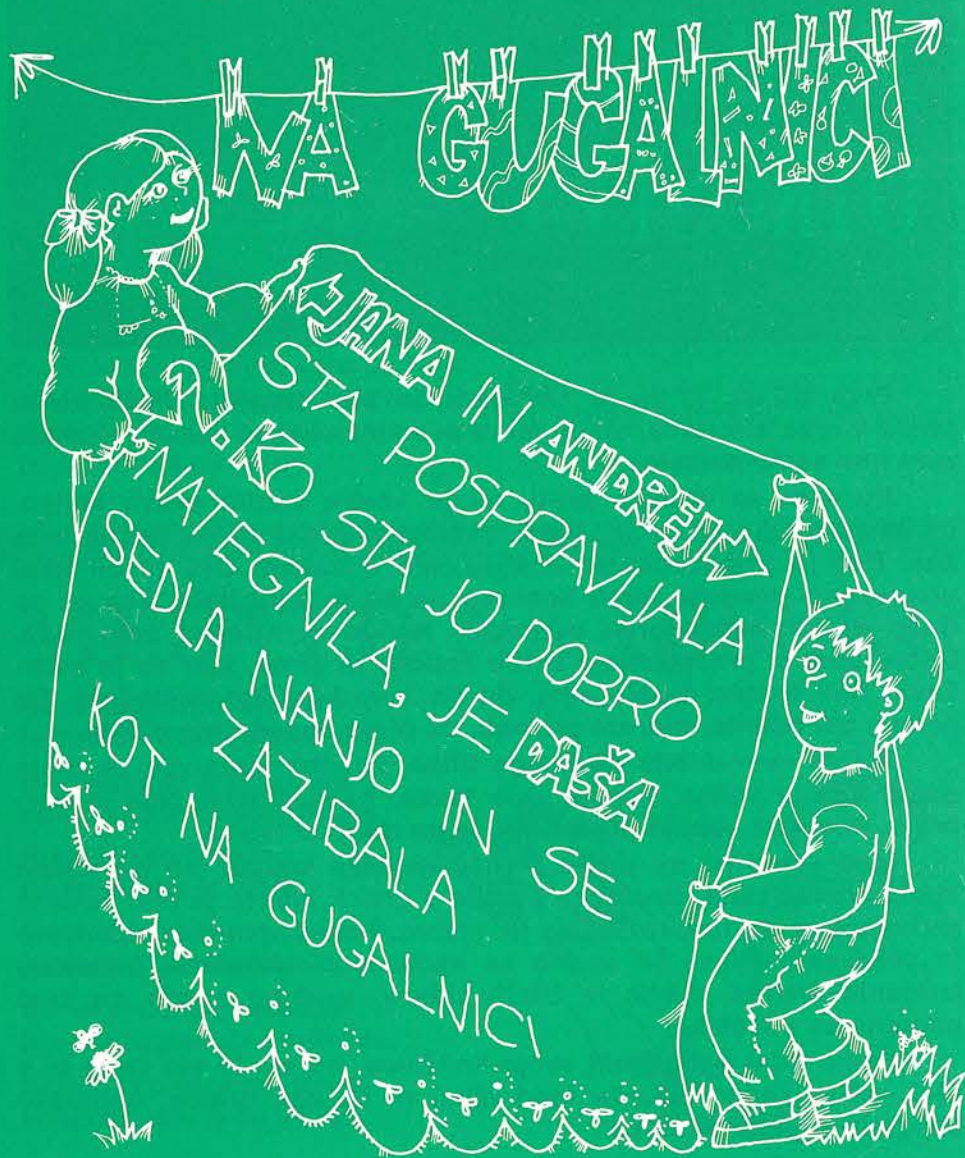 NA GUGALNICI
JANA IN ANDREJ
STA POSPRAVLJALA
?. KO STA JO DOBRO
NATEGNILA, JE DAŠA
SEDLA NANJO IN SE
ZAZIBALA
KOT NA GUGALNICI